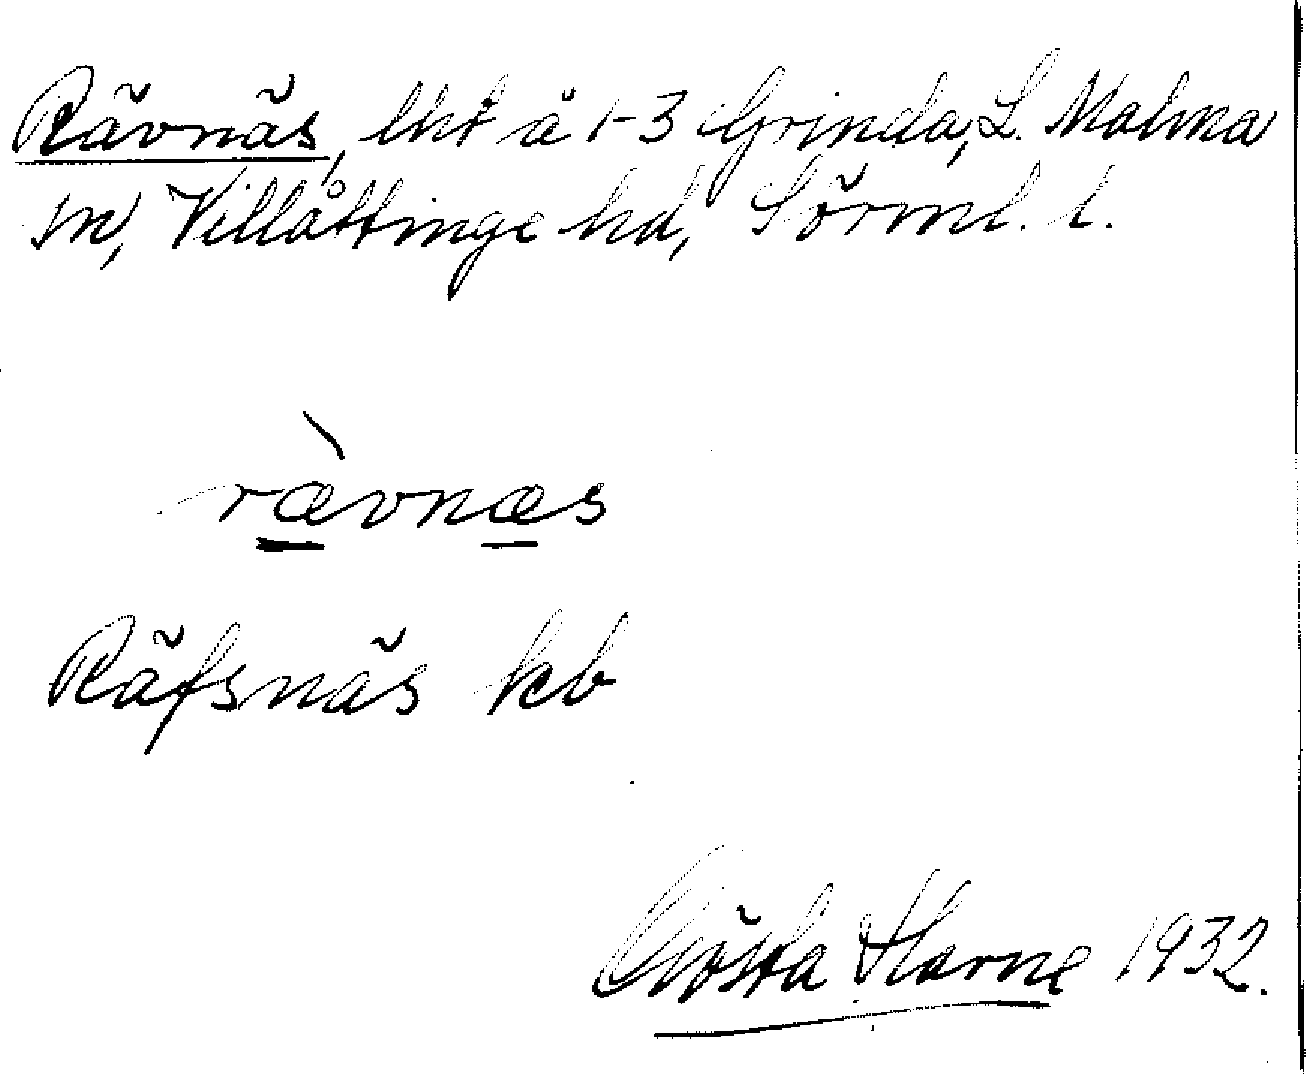 Rävnäs, lht å 1-3 Grinda, L. Malma
sn, Villåttinge hd, Sörml. l.
rævnæs
Räfsnäs kb
Gösta Harne 1932.